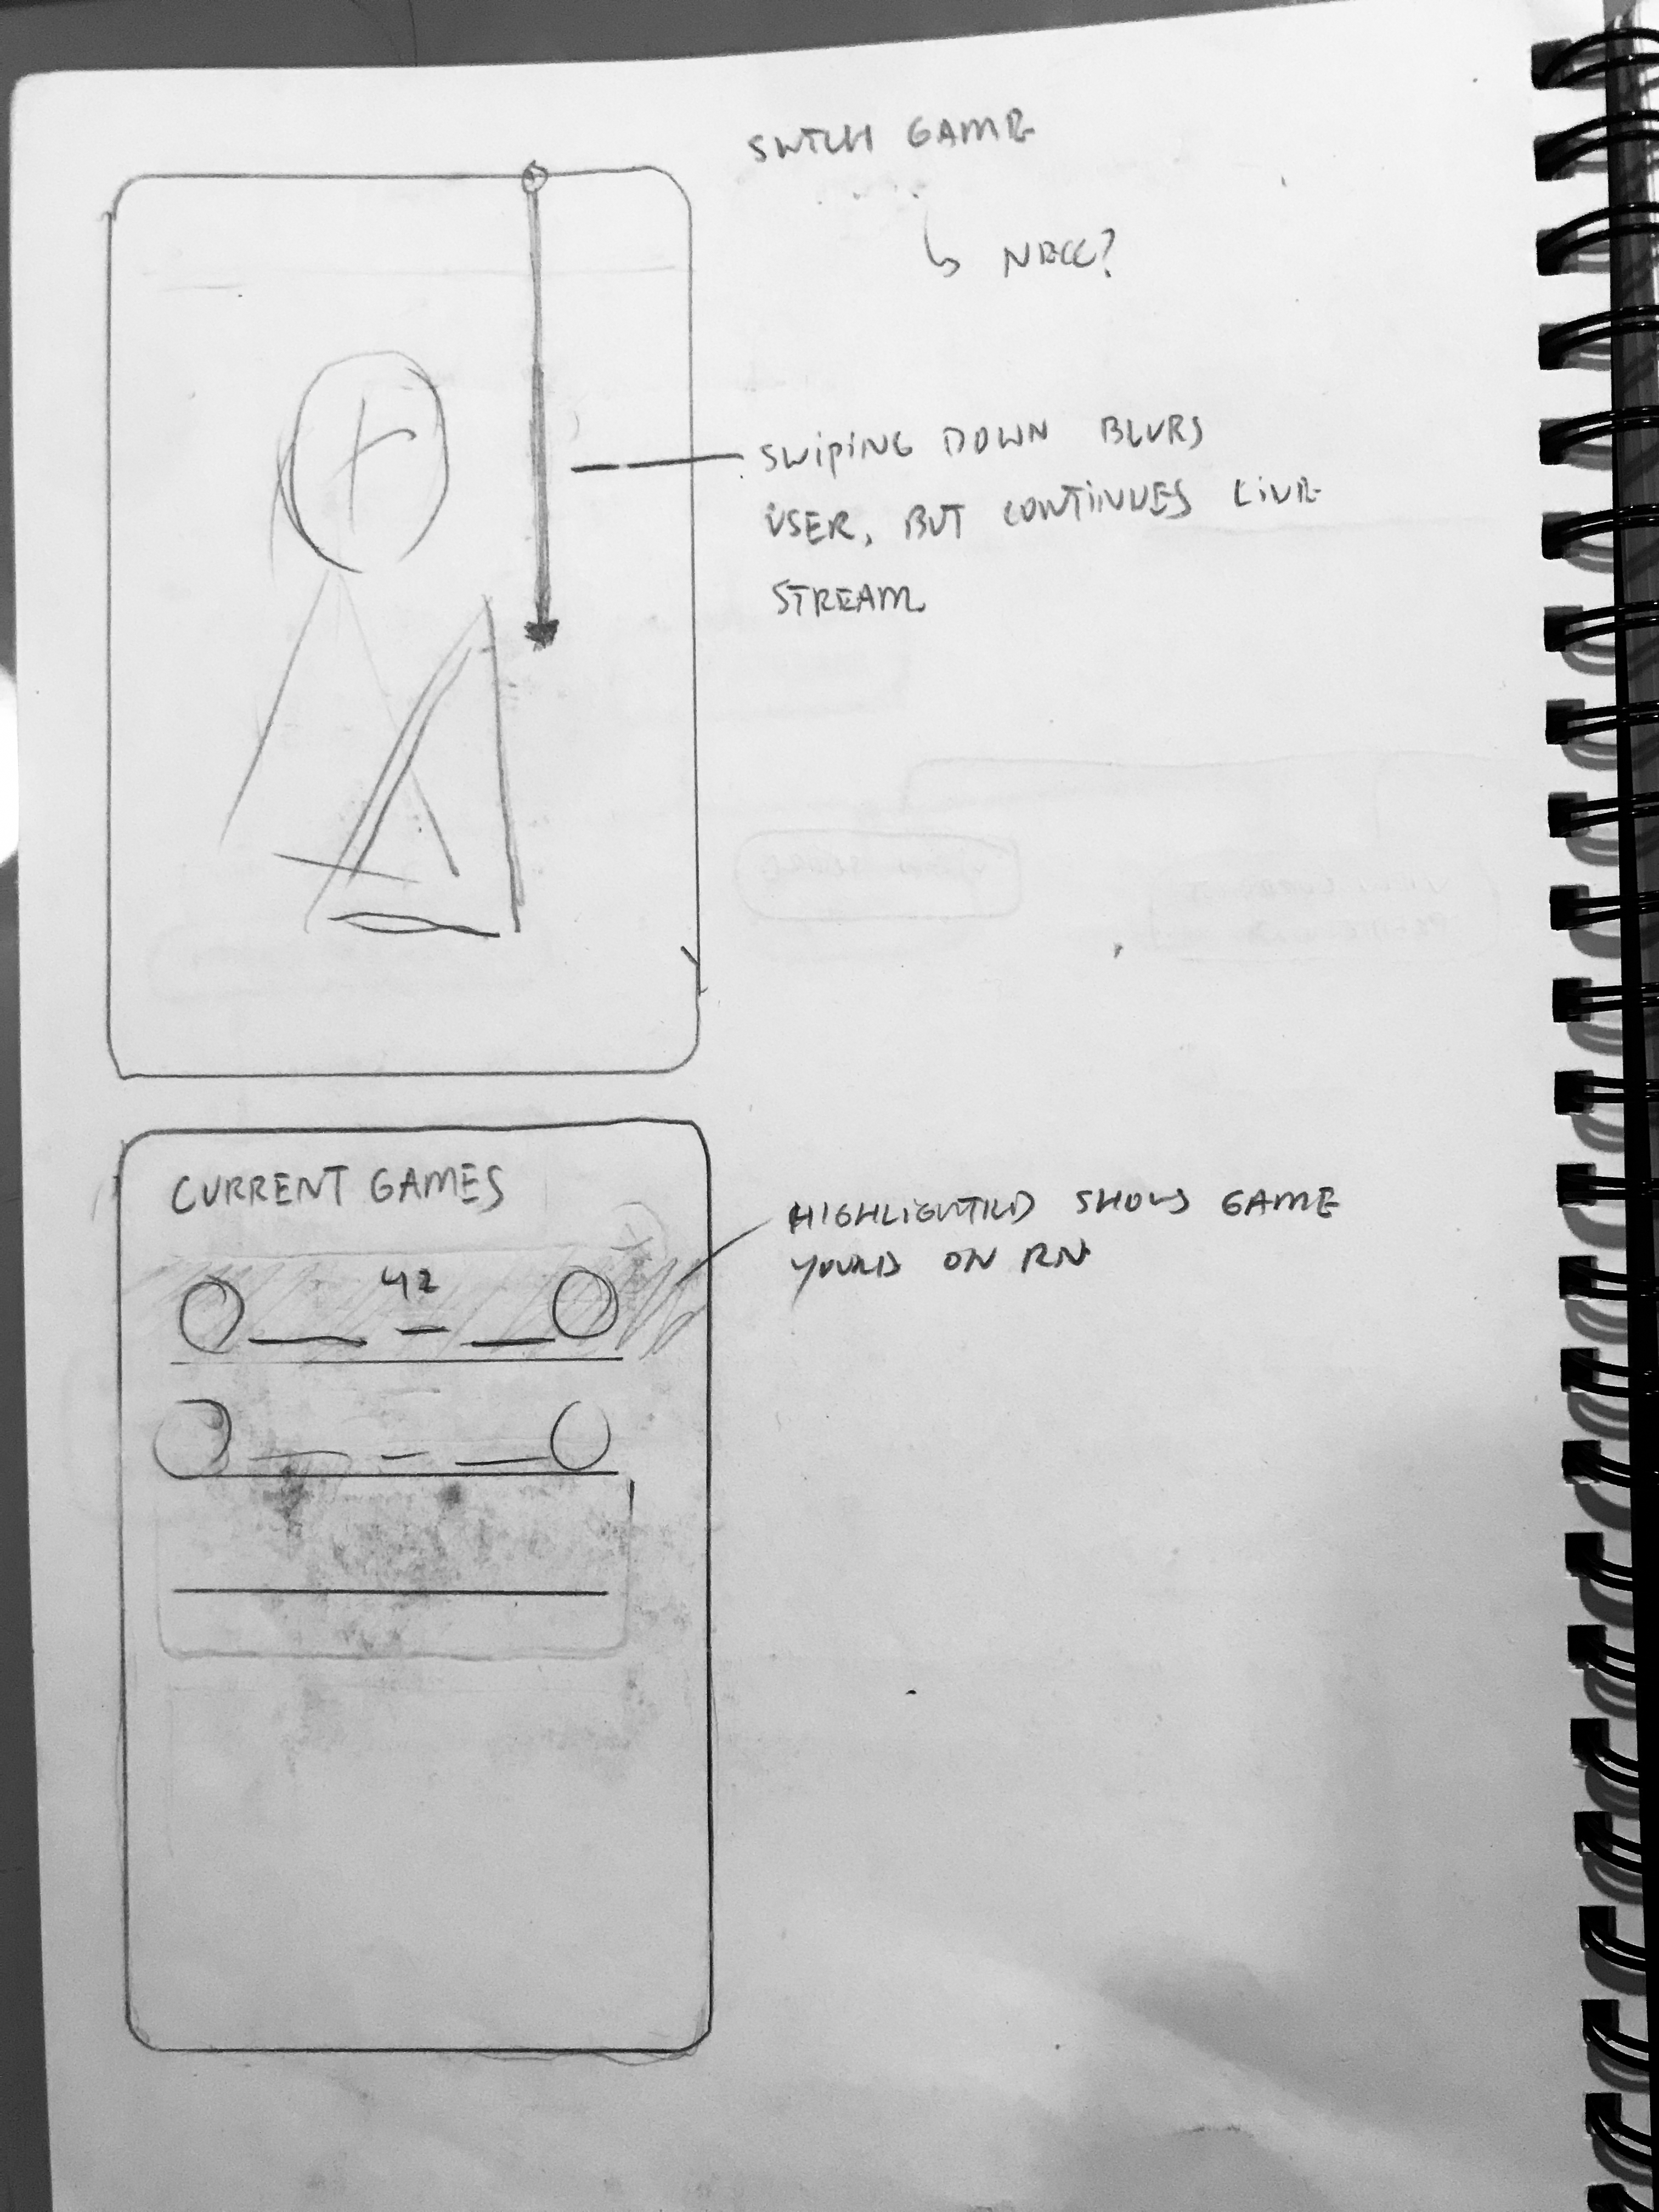 SWTCH GAME
↳ NECC?
SWIPING DOWN BLURS
USER, BUT CONTINUES LIVE
STREAM
CURRENT GAMES
42
HIGHLIGHTED SHOWS GAME
ON RN